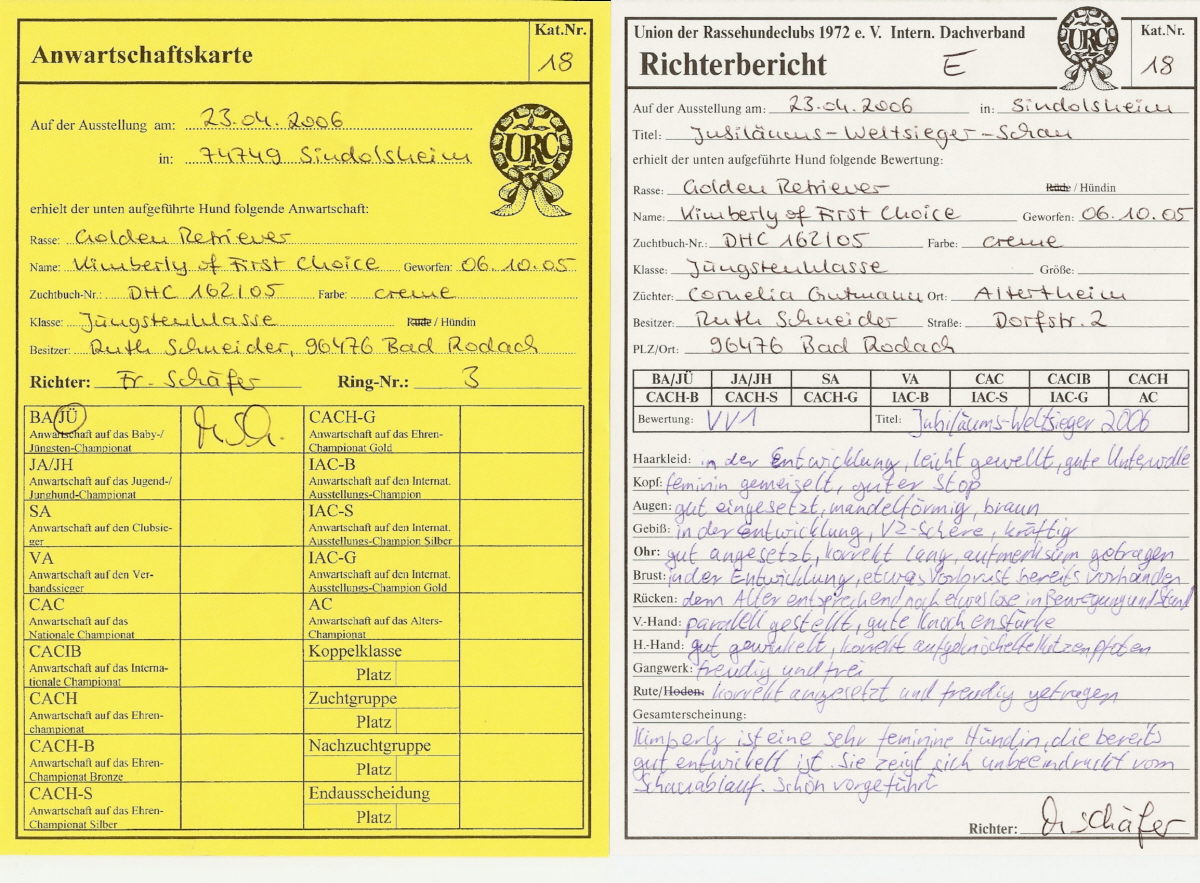 Anwartschaftskarte
Kat.Nr.
18
Auf der Ausstellung am: 23.04.2006
in: 74749 Sindolsheim
URC
erhielt der unten aufgeführte Hund folgende Anwartschaft:
Rasse: Golden Retriever
Name: Kimberly of First Choice Geworfen: 06.10.05
Zuchtbuch-Nr.: DHC 162/05 Farbe: creme
Klasse: Jüngstenklasse Rüde / Hündin
Besitzer: Ruth Schneider, 96476 Bad Rodach
Richter: Fr. Schäfer Ring-Nr.: 3
BA/JÜ
Anwartschaft auf das Baby-/
Jüngsten-Championat
JA/JH
Anwartschaft auf das Jugend-/
Junghund-Championat
SA
Anwartschaft auf den Clubsie-
ger
VA
Anwartschaft auf den Ver-
bandssieger
CAC
Anwartschaft auf das
Nationale Championat
CACIB
Anwartschaft auf das Interna-
tionale Championat
CACH
Anwartschaft auf das Ehren-
championat
CACH-B
Anwartschaft auf das Ehren-
Championat Bronze
CACH-S
Anwartschaft auf das Ehren-
Championat Silber
CACH-G
Anwartschaft auf das Ehren-
Championat Gold
IAC-B
Anwartschaft auf den Internat.
Ausstellungs-Champion
IAC-S
Anwartschaft auf den Internat.
Ausstellungs-Champion Silber
IAC-G
Anwartschaft auf den Internat.
Ausstellungs-Champion Gold
AC
Anwartschaft auf das Alters-
Championat
Koppelklasse
Platz
Zuchtgruppe
Platz
Nachzuchtgruppe
Platz
Endausscheidung
Platz
Union der Rassehundeclubs 1972 e. V. Intern. Dachverband
Richterbericht E
URC
Kat.Nr.
18
Auf der Ausstellung am: 23.04.2006 in: Sindolsheim
Titel: Jubiläums-Weltsieger-Schau
erhielt der unten aufgeführte Hund folgende Bewertung:
Rasse: Golden Retriever Rüde / Hündin
Name: Kimberly of First Choice Geworfen: 06.10.05
Zuchtbuch-Nr.: DHC 162/05 Farbe: creme
Klasse: Jüngstenklasse Größe:
Züchter: Cornelia Gutmann Ort: Altertheim
Besitzer: Ruth Schneider Straße: Dorfstr. 2
PLZ/Ort: 96476 Bad Rodach
BA/JÜ JA/JH SA VA CAC CACIB CACH
CACH-B CACH-S CACH-G IAC-B IAC-S IAC-G AC
Bewertung: VV1 Titel: Jubiläums-Weltsieger 2006
Haarkleid: in der Entwicklung, leicht gewellt, gute Unterwolle
Kopf: feminin gemeiselt, guter Stop
Augen: gut eingesetzt, mandelförmig, braun
Gebiß: in der Entwicklung, VZ-Schere, kräftig
Ohr: gut angesetzt, korrekt lang, aufmerksam getragen
Brust: in der Entwicklung, etwas Vorbrust bereits vorhanden
Rücken: dem Alter entsprechend noch etwas lose in Bewegung und Stand
V.-Hand: parallel gestellt, gute Knochenstärke
H.-Hand: gut gewinkelt, korrekt aufgeknöchelte Katzenpfoten
Gangwerk: freudig und frei
Rute/Hoden: korrekt angesetzt und freudig getragen
Gesamterscheinung:
Kimberly ist eine sehr feminine Hündin, die bereits
gut entwickelt ist. Sie zeigt sich unbeeindruckt vom
Schauablauf. Schön vorgeführt
Richter: Schäfer